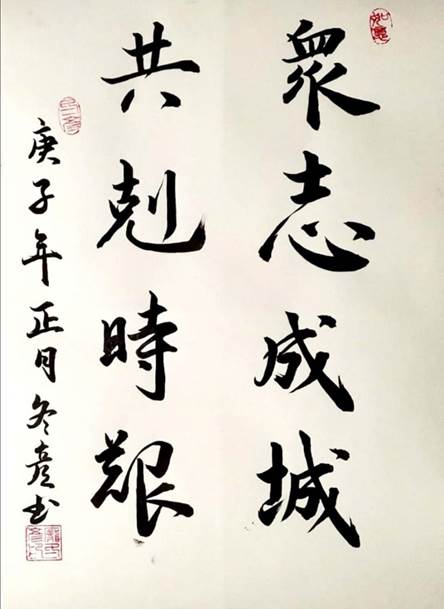 眾志成城
共剋時艱
庚子年正月冬彦书
如意